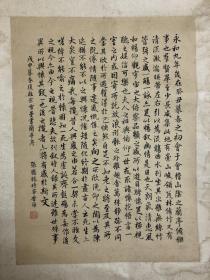 永和九年歲在癸丑暮春之初會于會稽山陰之蘭亭脩禊
事也群賢畢至少長咸集此地有崇山峻領茂林脩竹又有
清流激湍映帶左右引以為流觴曲水列坐其次雖無絲竹
管弦之盛一觴一詠亦足以暢敘幽情是日也天朗氣清惠風
和暢仰觀宇宙之大俯察品類之盛所以遊目騁懷足以極視
聽之娛信可樂也夫人之相與俯仰一世或取諸懷抱悟言一
室之內或因寄所託放浪形骸之外雖趣舍萬殊靜躁不同
當其欣於所遇暫得於己快然自足不知老之將至及其所
之既倦情隨事遷感慨係之矣向之所欣俛仰之間已為陳
迹猶不能不以之興懷況脩短隨化終期於盡古人云死生亦大
矣豈不痛哉每攬昔人興感之由若合一契未嘗不臨文
嗟悼不能喻之於懷固知一死生為虛誕齊彭殤為妄作後
之視今亦由今之視昔悲夫故列敘時人錄其所述雖世殊事
異所以興懷其致一也後之覽者亦將有感於斯文
戊申暮春